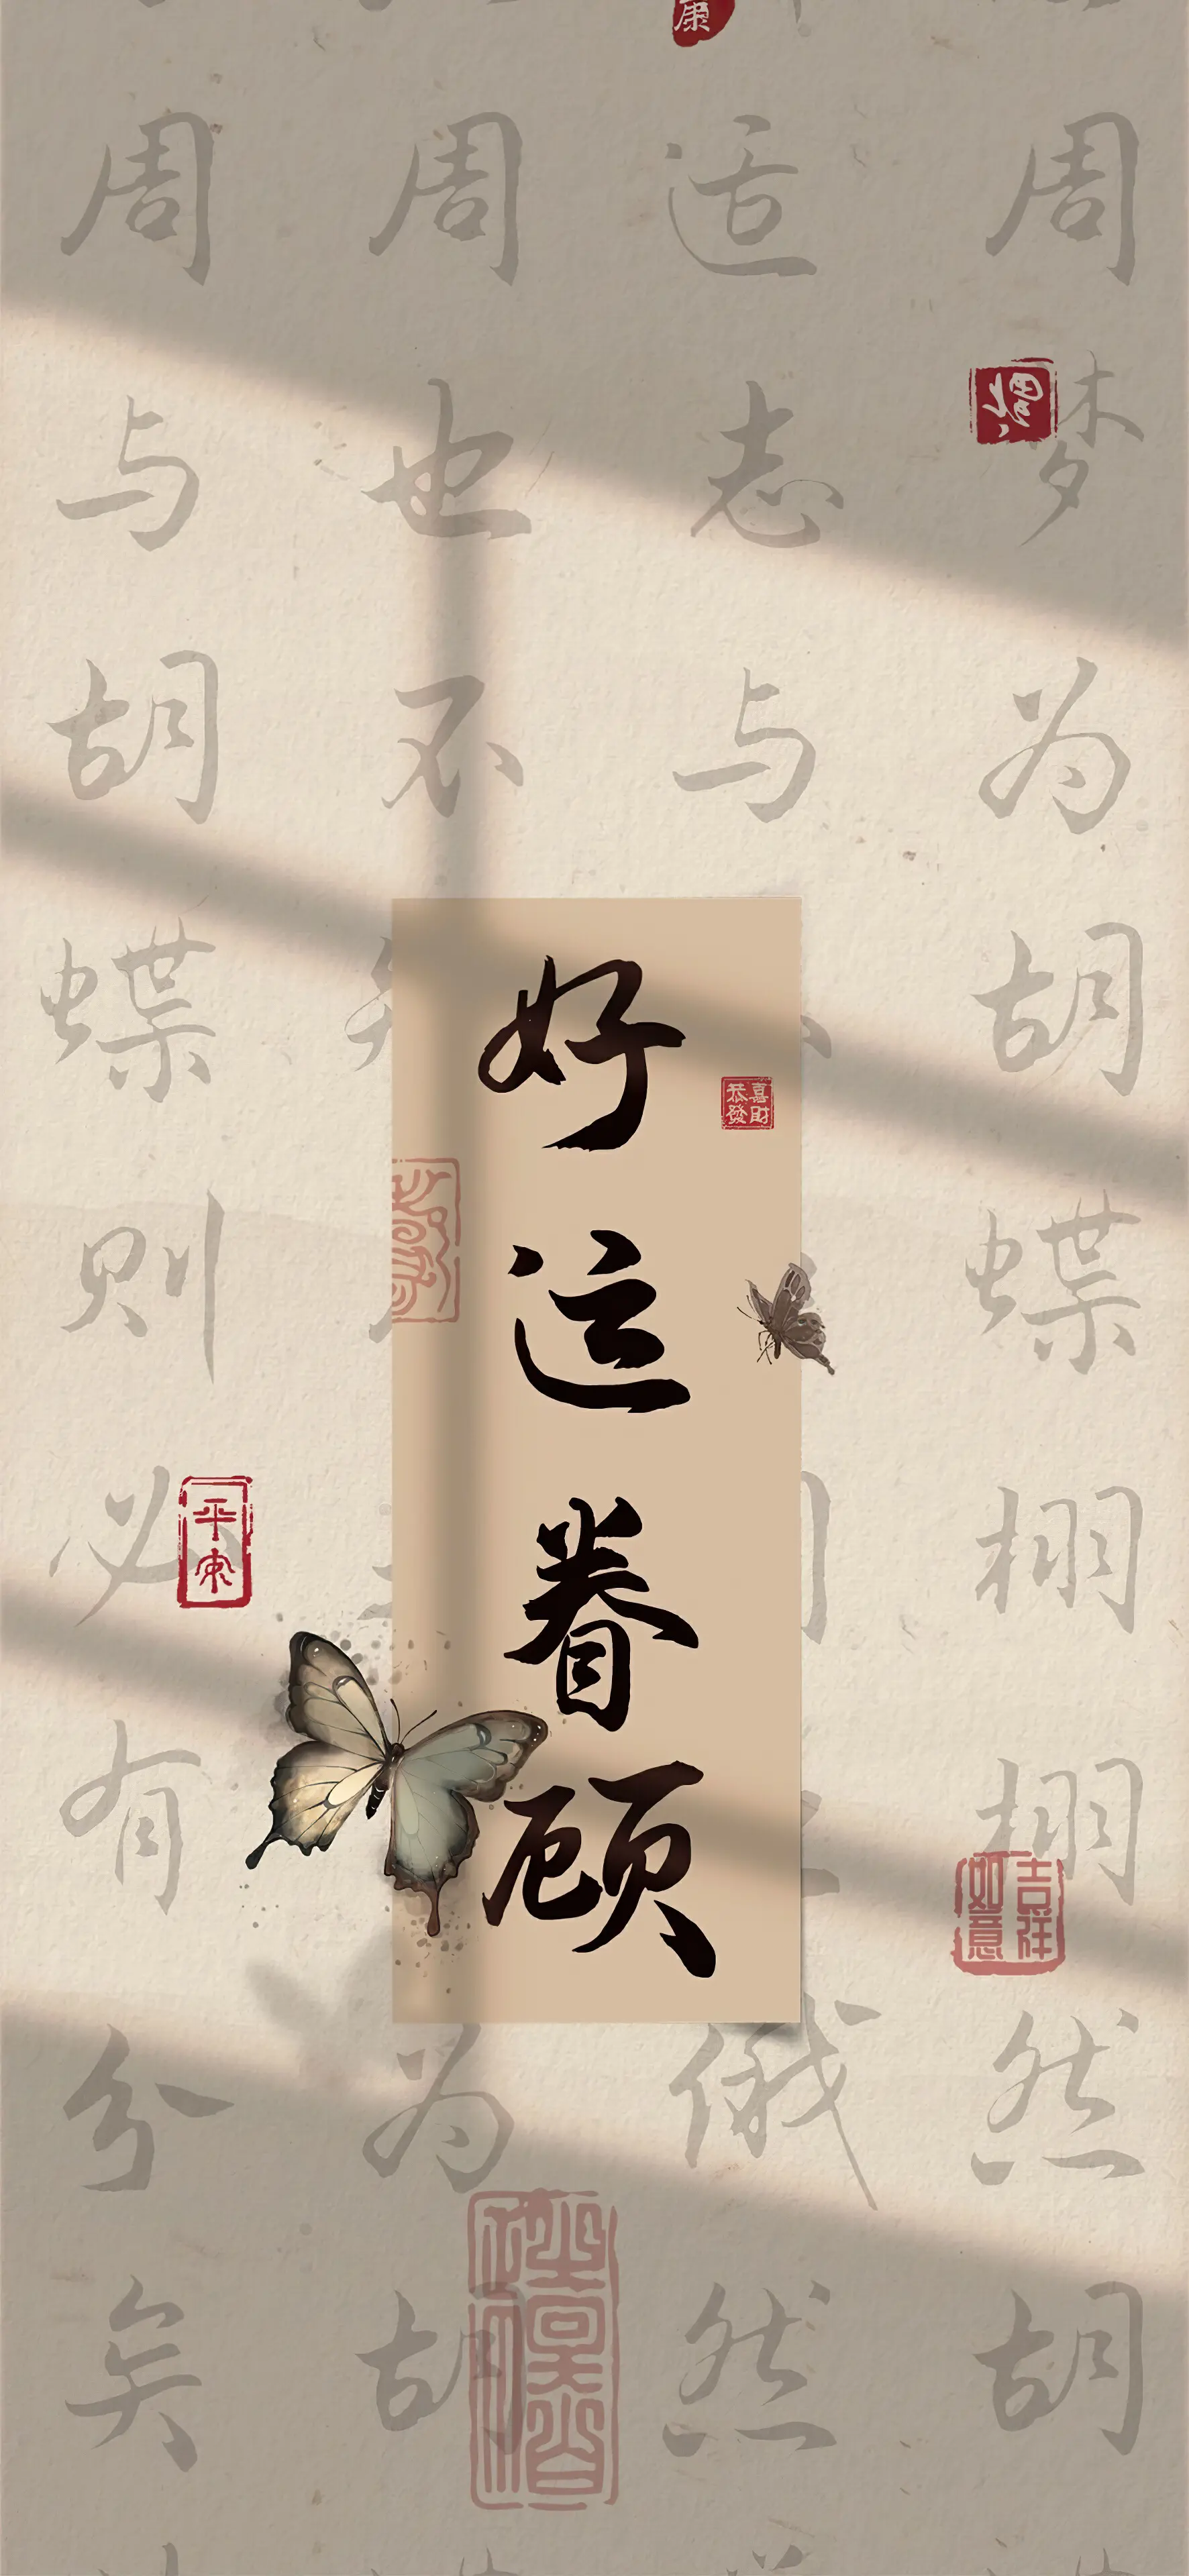 好运眷顾
恭喜
發財
周梦为胡蝶栩栩然胡
适志与
俄然
周也不
为胡
周与胡蝶则必有分矣
康
平安
吉祥
如意